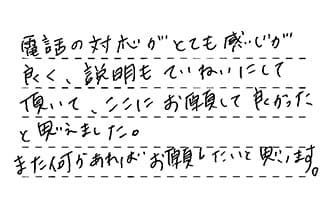 電話の対応がとても感じが
良く、説明もていねいにして
頂いて、ここにお願して良かった
と思えました。
また何かあればお願したいと思います。